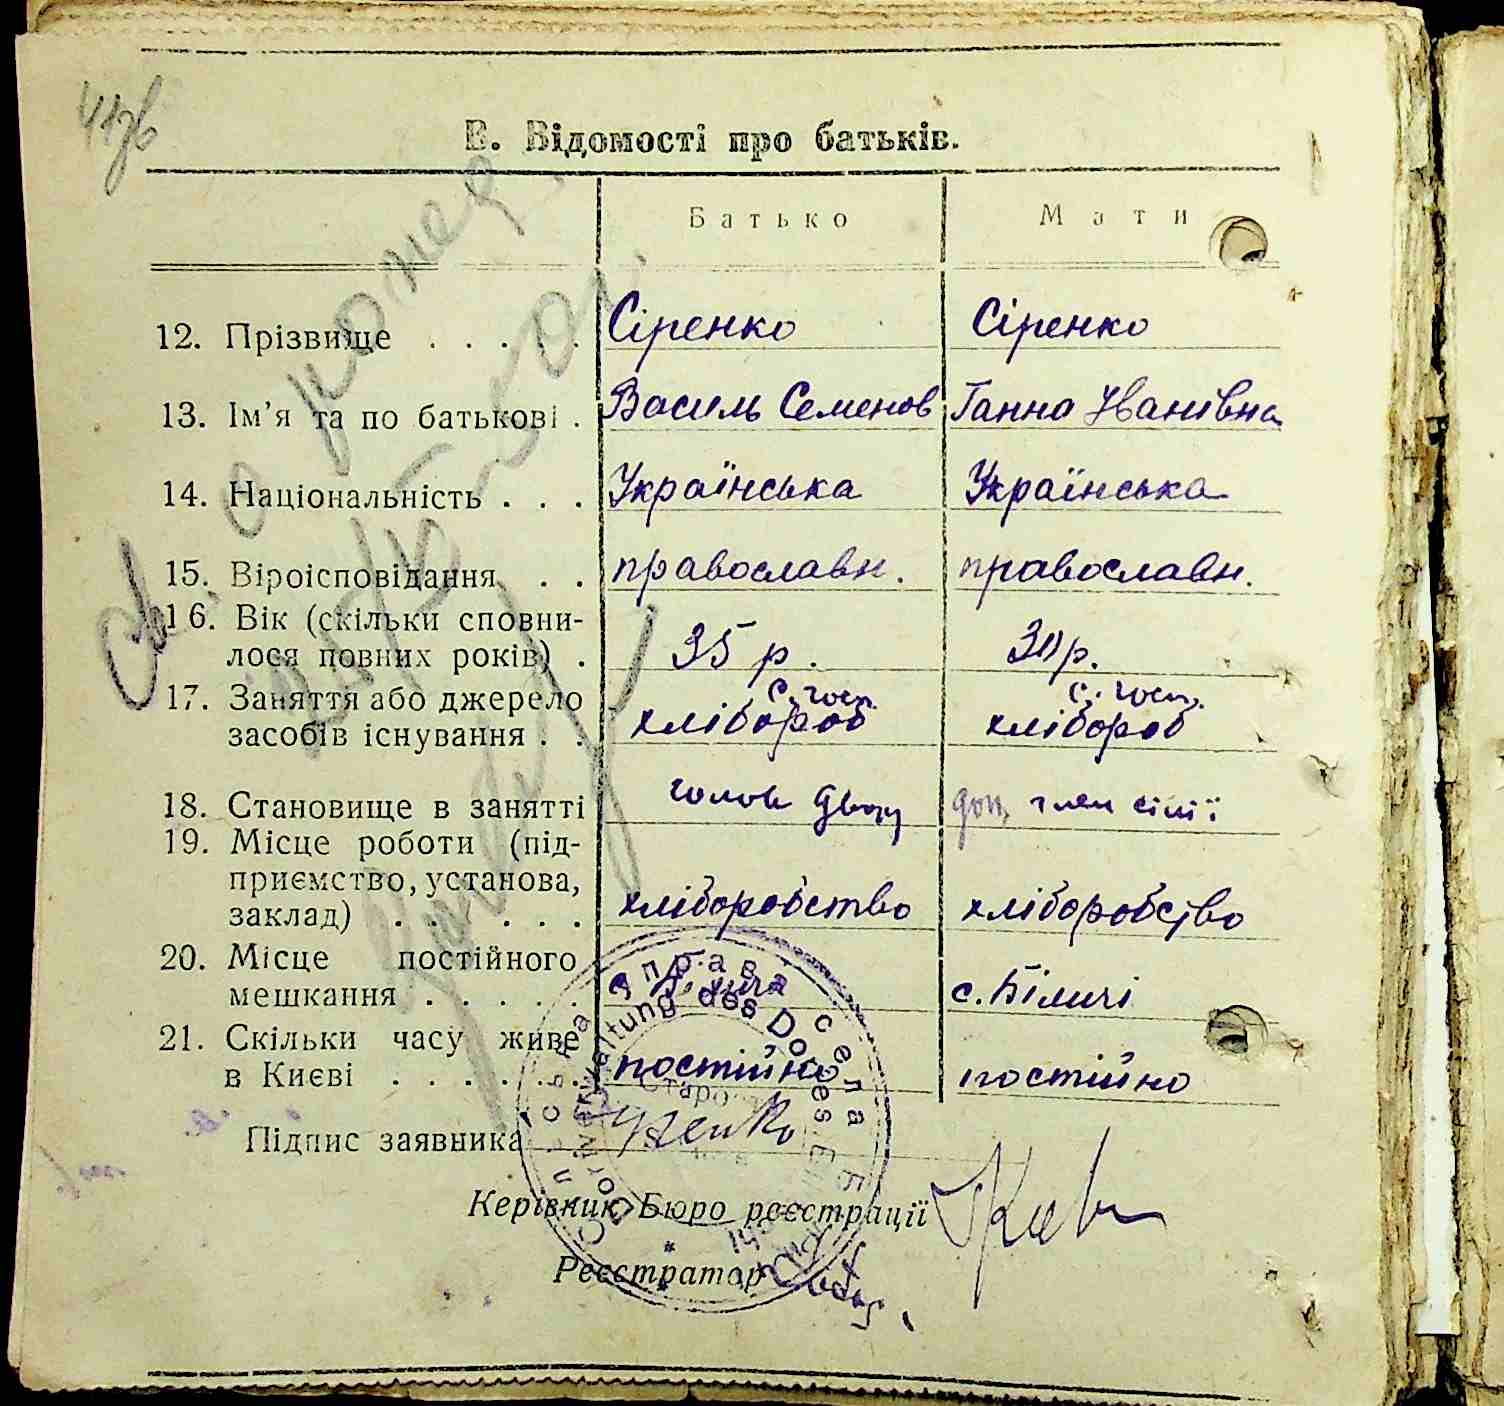 В. Відомості про батьків.
Батько Мати
12. Прізвище . . . . . Сіренко Сіренко
13. Ім'я та по батькові . Василь Семенов Ганна Іванівна
14. Національність . . . Українська Українська
15. Віроісповідання . . православн. православн.
16. Вік (скільки сповни-
лося повних років) . 35 р. 30 р.
17. Заняття або джерело с. госп. с. госп.
засобів існування . . хлібороб хлібороб
18. Становище в занятті голова двору доп. член сімї
19. Місце роботи (під-
приємство, установа,
заклад) . . . . . . хліборобство хліборобство
20. Місце постійного
мешкання . . . . . с. Біличі
21. Скільки часу живе
в Києві . . . . . . постійно постійно
Підпис заявника
Керівник Бюро реєстрації
Реєстратор
Сільська управа села
Dorfverwaltung des Dorfes